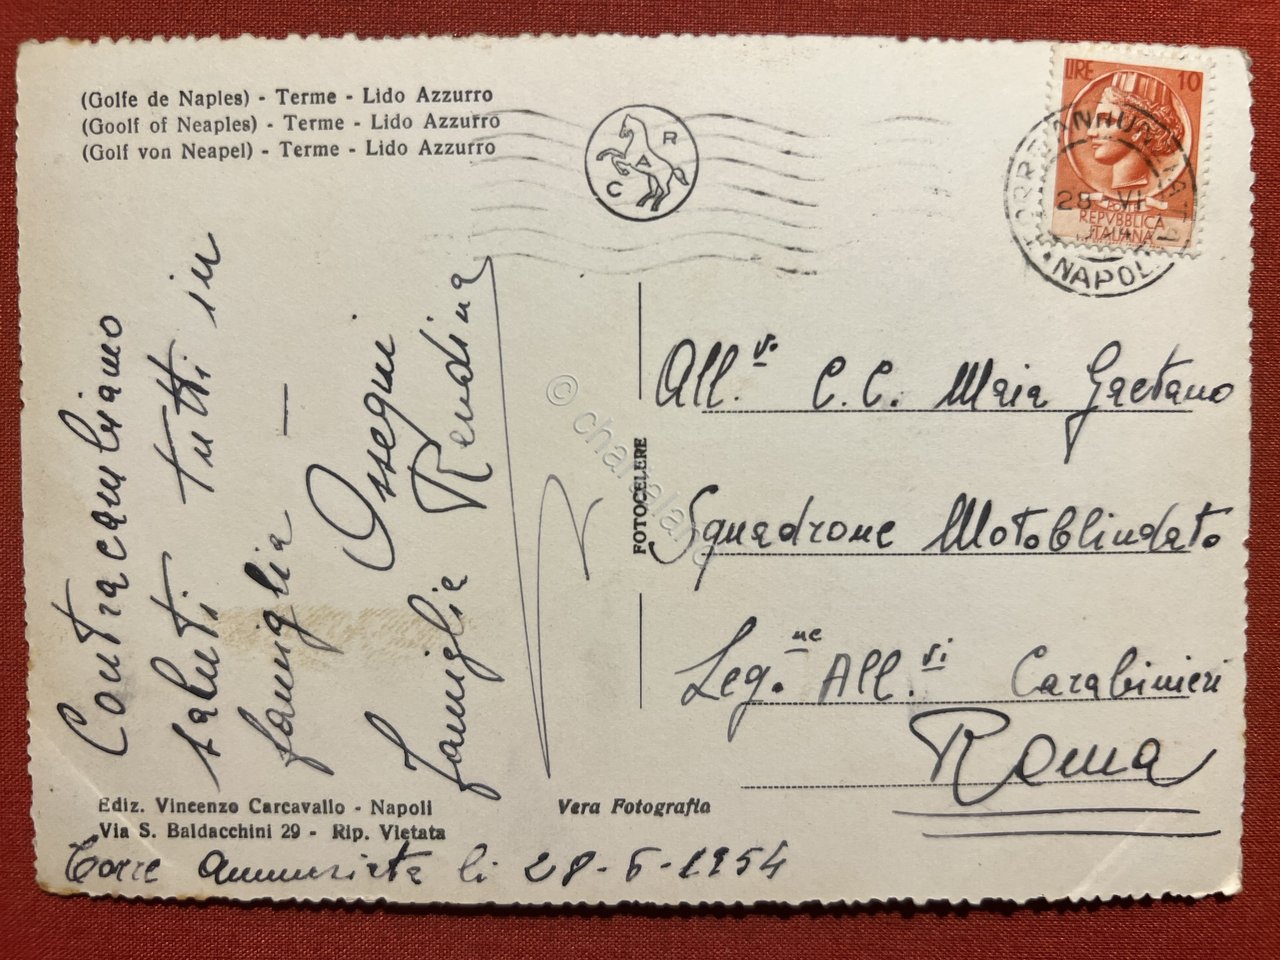 (Golfe de Naples) - Terme - Lido Azzurro
(Goolf of Neaples) - Terme - Lido Azzurro
(Golf von Neapel) - Terme - Lido Azzurro
C A R
LIRE 10
REPVBBLICA
ITALIANA
TORRE ANNUNZIATA
28 VI
NAPOLI
Contracambiamo
saluti tutti in
famiglia —
Ossequi
famiglia Rendina
FOTOCELERE
All.vo C.C. Maia Gaetano
Squadrone Motoblindato
Leg.ne All.vi Carabinieri
Roma
Ediz. Vincenzo Carcavallo - Napoli
Via S. Baldacchini 29 - Rip. Vietata
Vera Fotografia
Torre Annunziata li 28-6-1954